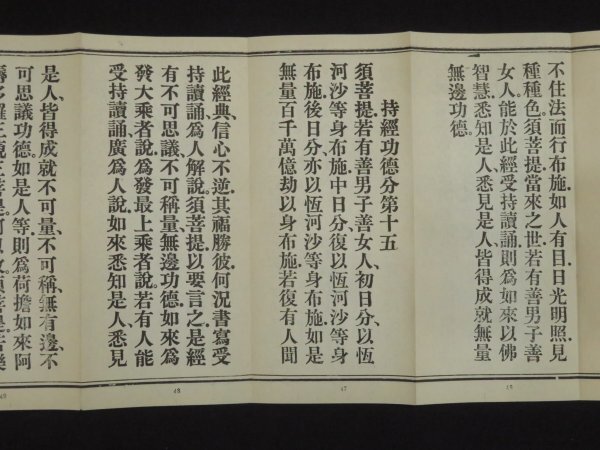 不住法而行布施。如人有目、日光明照見
種種色。須菩提、當來之世、若有善男子善
女人、能於此經受持讀誦、則爲如來以佛
智慧、悉知是人、悉見是人、皆得成就無量
無邊功德。
持經功德分第十五
須菩提、若有善男子善女人、初日分、以恆
河沙等身布施、中日分、復以恆河沙等身
布施、後日分、亦以恆河沙等身布施、如是
無量百千萬億劫、以身布施、若復有人、聞
此經典、信心不逆、其福勝彼、何況書寫受
持讀誦、爲人解說。須菩提、以要言之、是經
有不可思議、不可稱量、無邊功德、如來爲
發大乘者說、爲發最上乘者說、若有人能
受持讀誦、廣爲人說、如來悉知是人、悉見
是人、皆得成就不可量、不可稱、無有邊、不
可思議功德、如是人等、則爲荷擔如來阿
47
48